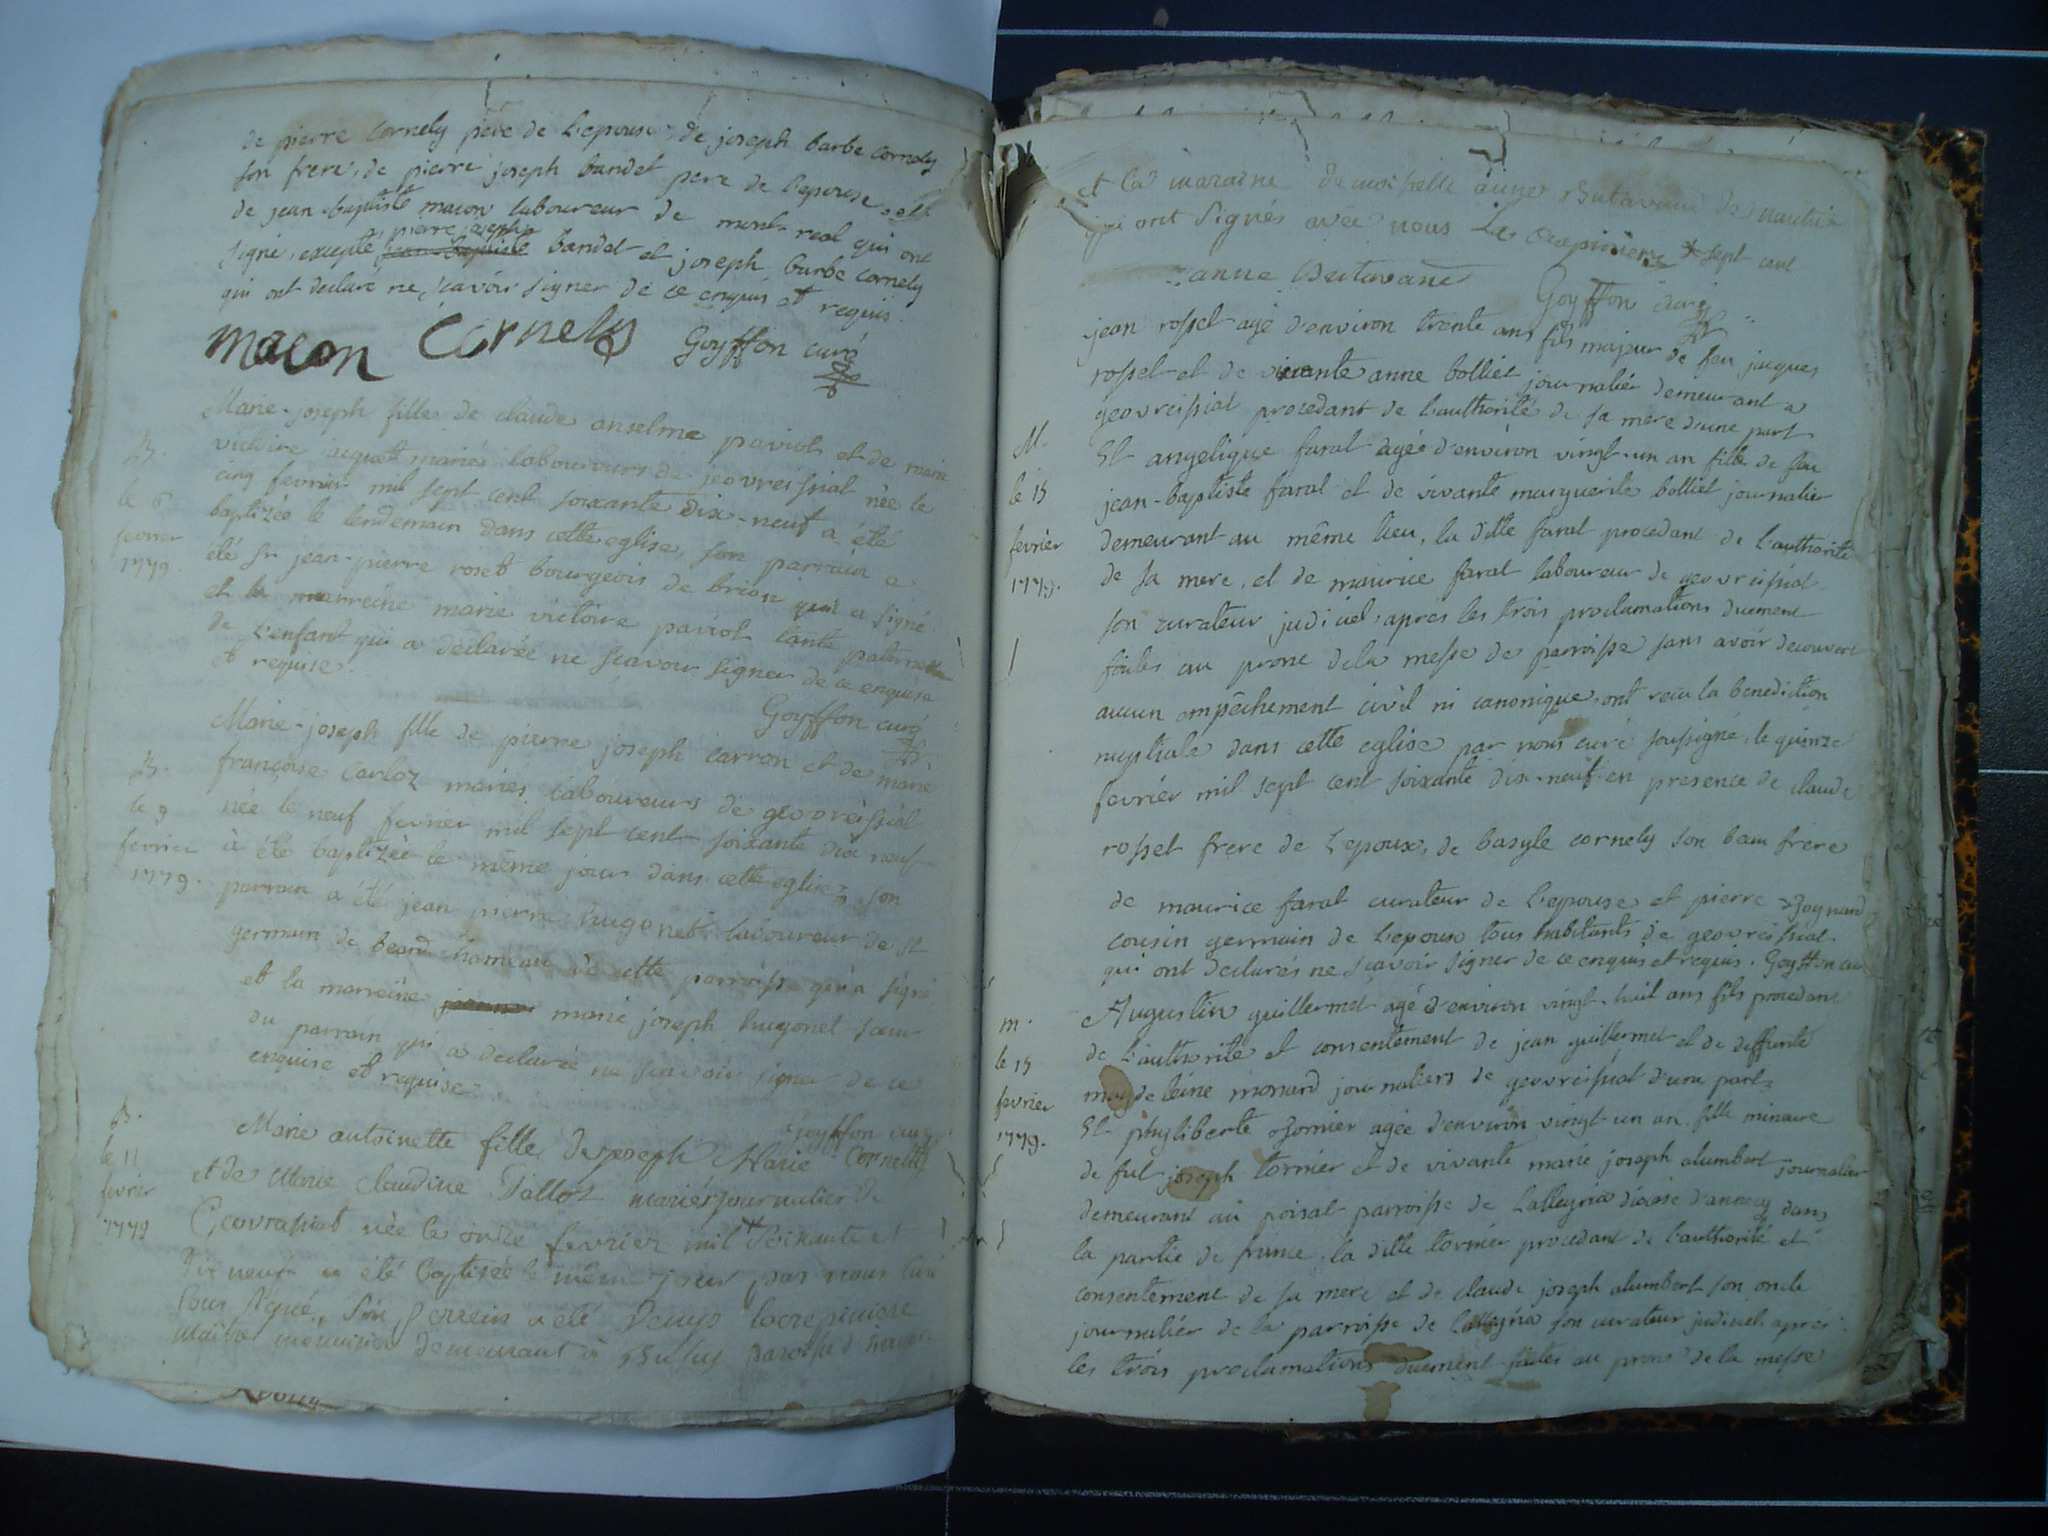 de pierre Cornely père de L'epouse, de joseph barbe cornely
son frere, de pierre joseph bandet pere de l'epouse, et
de jean-baptiste macon laboureur de mont-real qui ont
signé, excepté pierre joseph jean baptiste bandet et joseph barbe cornely
qui ont declaré ne scavoir signer de ce enquis et requis.
macon Cornely Goyffon curé
Marie-joseph fille de claude anselme paviot et de marie
B.
victoire jaquet mariés laboureurs de jeovreissiat née le
le 6
cinq fevrier mil sept cent soixante dix-neuf a été
fevrier
baptizée le lendemain dans cette eglise, son parrain a
1779.
été sr jean-pierre roset bourgeois de brion qui a signé
et la marreine marie victoire paviot tante paternelle
de l'enfant qui a declarée ne scavoir signer de ce enquise
et requise.
Goyffon curé
Marie-joseph fille de pierre joseph carron et de marie
B.
françoise Carloz mariés laboureurs de geovreissiat
le 9
née le neuf fevrier mil sept cent soixante dix neuf
fevrier
à été baptizée le même jour dans cette eglise, son
1779.
parrain a été jean pierre hugonet laboureur de st
germain de beard hameau de cette parroisse qui a signé
et la marreine marie joseph hugonet soeur
du parrain qui a declarée ne scavoir signer de ce
enquise et requise.
Goyffon curé
B.
Marie antoinette fille de joseph Marie Cornelly
le 11
et de Marie Claudine Tallot mariés journalier de
fevrier
Geovrassiat née le onze fevrier mil Soixante et
1779
Dix neuf a été Baptisée le même jour par nous curé
Sous signé, Son parrein a été Denys lacrepiniere
Maitre menuisier demeurant à paroisse
et la maraine demoiselle anne Butavand de nantua
qui ont signés avec nous La Crepiniere sept cent
anne Butavand Goyffon curé
jean rosset agé d'environ trente ans fils majeur de feu jacques
rosset et de vivante anne bolliet journalier demeurant a
geovreissiat procedant de l'authorité de sa mere d'une part
M.
Et angelique farat agée d'environ vingt-un an fille de feu
le 15
jean-baptiste farat et de vivante marguerite bolliet journalier
fevrier
demeurant au même lieu, la ditte farat procedant de l'authorité
1779.
de sa mere, et de maurice farat laboureur de geovreissiat
son curateur judiciel, apres les trois proclamations duement
faites au prone de la messe de parroisse sans avoir decouvert
aucun empêchement civil ni canonique, ont recu la benediction
nuptiale dans cette eglise par nous curé soussigné, le quinze
fevrier mil sept cent soixante dix-neuf en presence de claude
rosset frere de L'epoux, de basyle cornely son beau frere
de maurice farat curateur de L'epouse et pierre
cousin germain de L'epoux tous habitants de geovreissiat
qui ont declarés ne scavoir signer de ce enquis et requis. Goyffon cu
m.
Augustin guillermet agé d'environ vingt-huit ans fils procedant
de L'authorité et consentement de jean guillermet et de deffunte
le 15
magdeleine monard journaliers de geovreissiat d'une part
fevrier
Et phyliberte tornier agée d'environ vingt-un an fille minaure
1779.
de fut joseph tornier et de vivante marie joseph alumbert journalier
demeurant au poisat parroisse de Lalleyria diocese d'annecy dans
la partie de france, la ditte tornier procedant de l'authorité et
consentement de sa mere et de claude joseph alumbert son oncle
journalier de la parroisse de Lalleyria son curateur judiciel, apres
les trois proclamations duement faites au prone de la messe